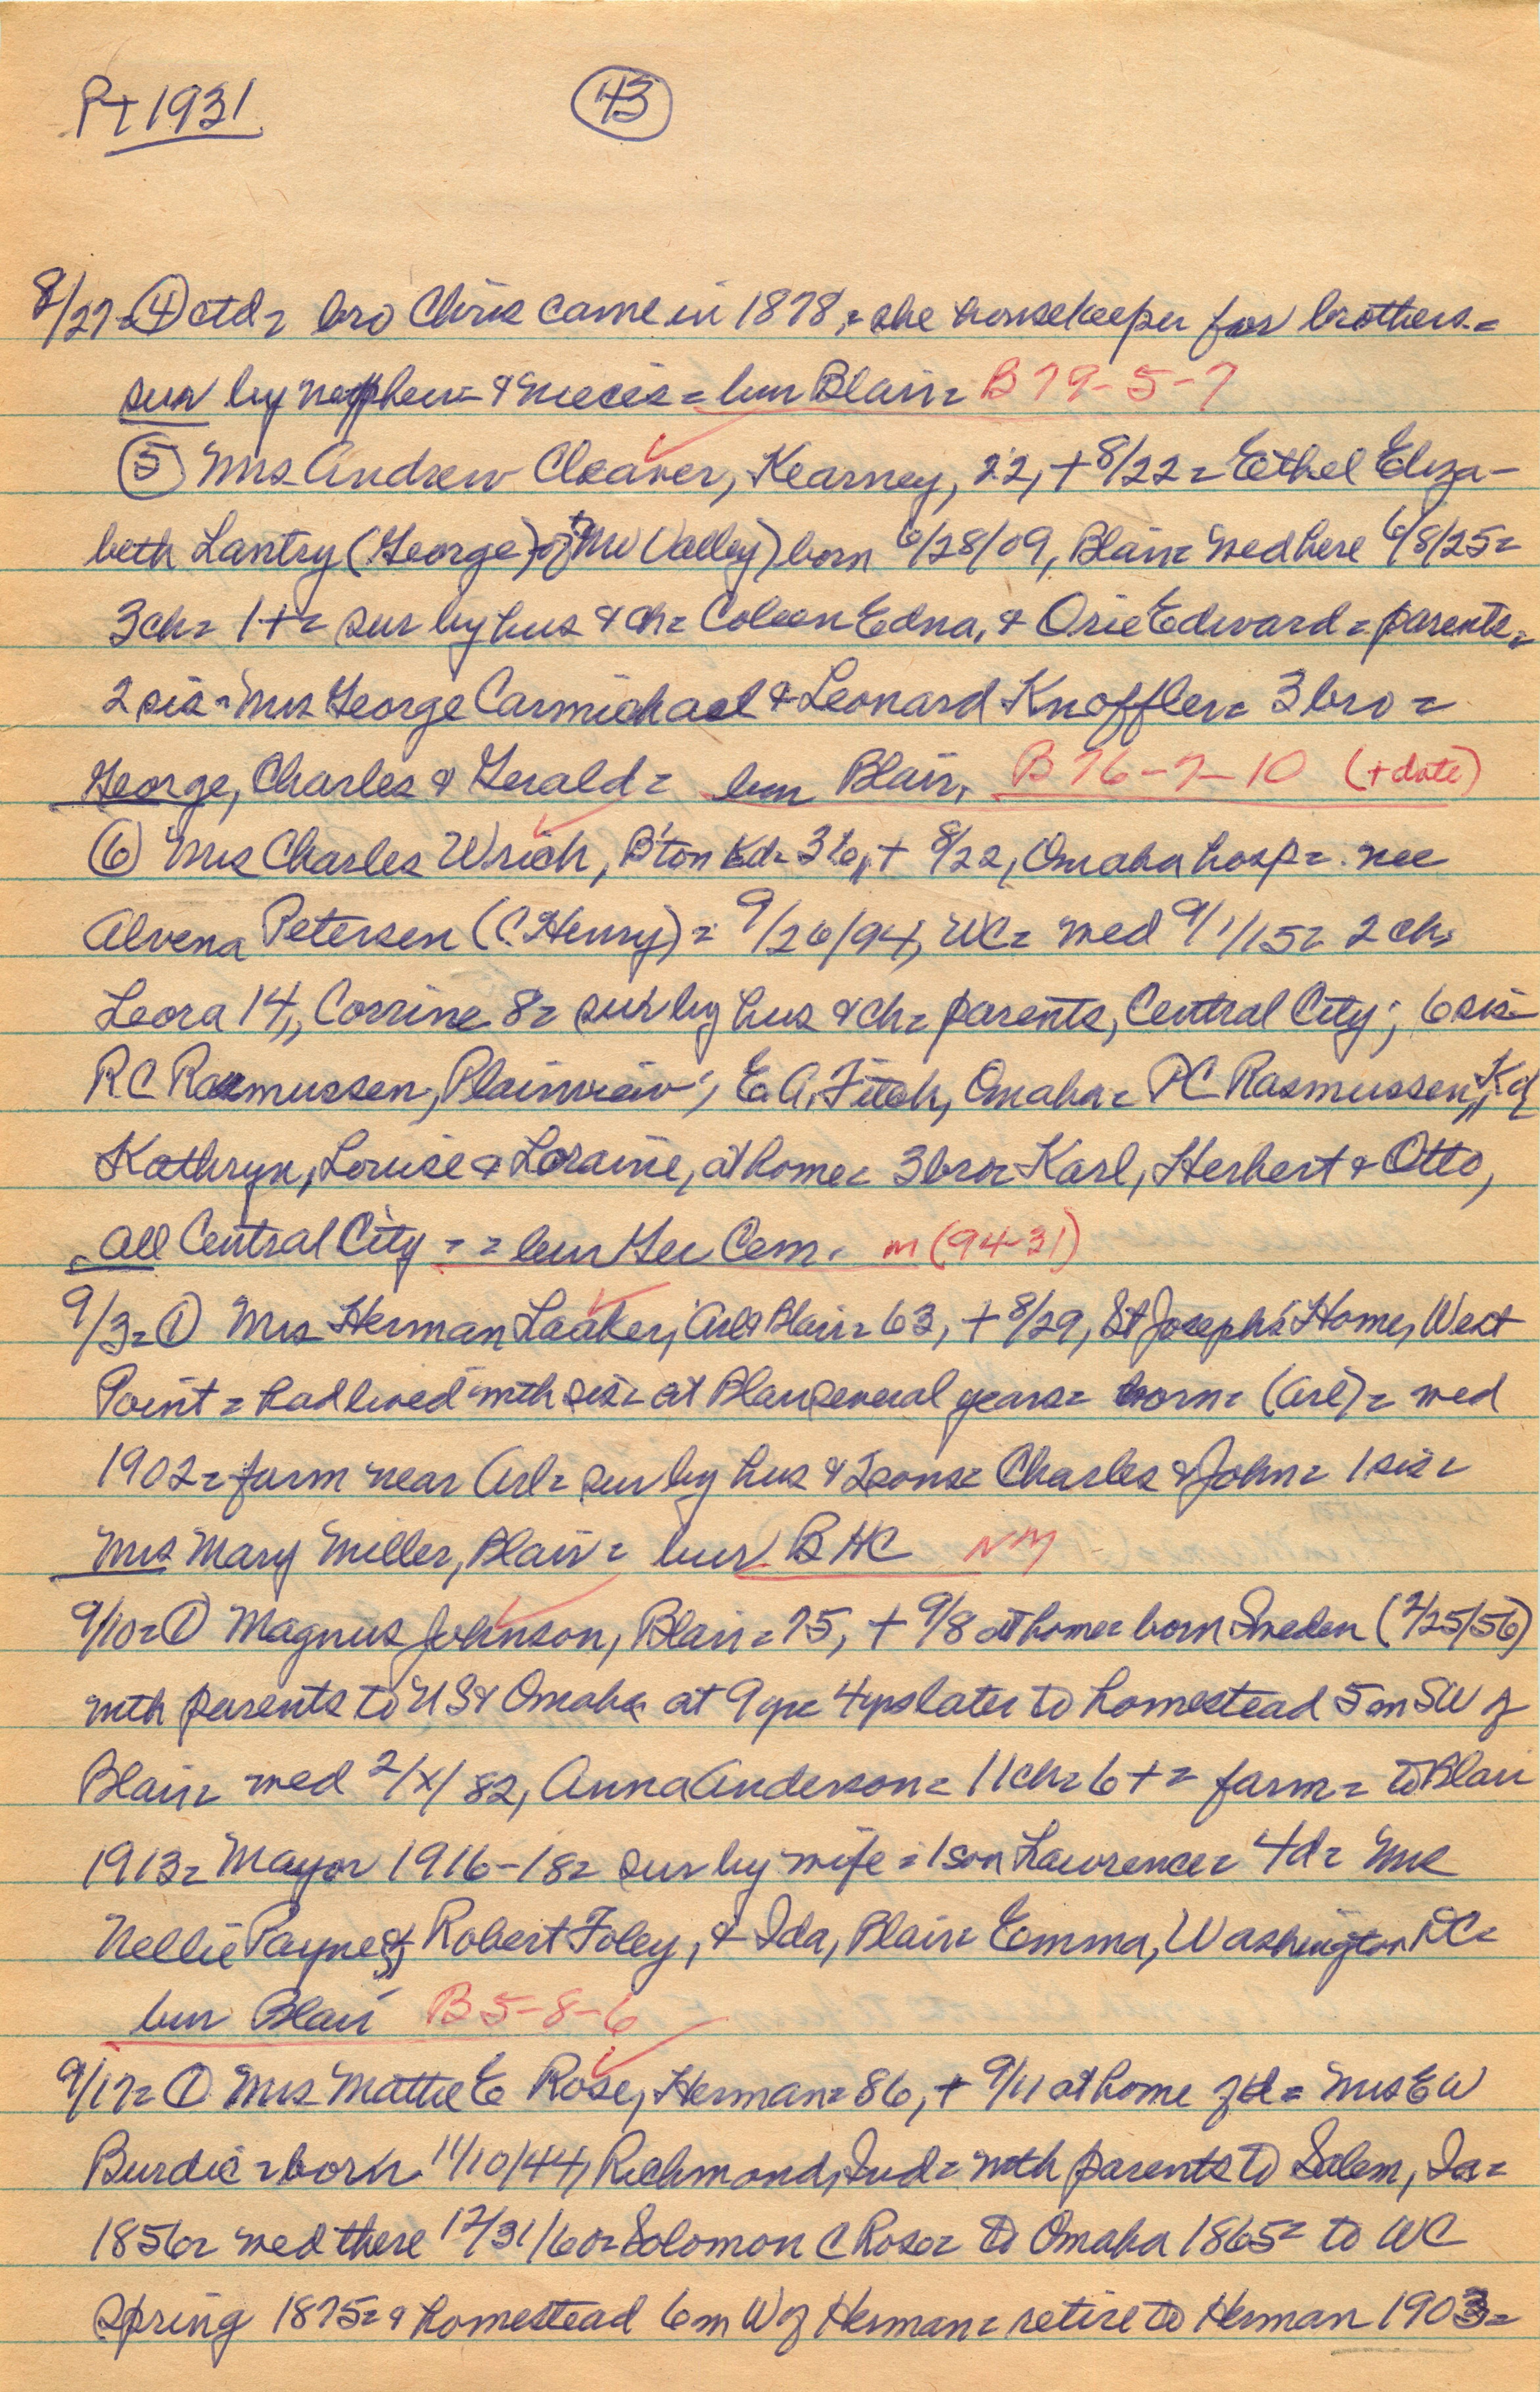 Pt 1931
43
8/27=④ ctd= bro Chris came in 1878,= she housekeeper for brothers.=
sur by nephews & nieces= bur Blair= B79-5-7
⑤ Mrs Andrew Cleaver, Kearney, 22, + 8/22= Eethel Eliza-
beth Lantry (George) of Mo Valley) born 6/28/09, Blair= wed here 6/8/25=
3ch= 1+= sur by hus & ch= Coleen Edna, & Orie Edward= parents=
2 sis= Mrs George Carmichael & Leonard Knoffler= 3 bro=
George, Charles & Gerald= bur Blair, B76-7-10 (+date)
⑥ Mrs Charles Wrich, B'ton Kd= 36, + 8/22, Omaha hosp= nee
Alvena Petersen (C. Henry)= 9/26/94, WC= wed 9/1/15= 2 ch,
Leora 14,, Corrine 8= sur by hus & ch= parents, Central City; 6 sis=
RC Rasmussen, Plainview; E.A. Fitch, Omaha= PC Rasmussen,, Kd
Kathryn, Louise & Loraine, at home= 3 bro= Karl, Herbert & Otto,
all Central City = = bur Ger Cem. m (94-31)
9/3=① Mrs Herman Laaker, Arl & Blair= 63, + 8/29, St Joseph's Home, West
Point= had lived with sis= at Blair several years= born= (Arl)= wed
1902= farm near Arl= sur by hus & 2 sons= Charles & John= 1 sis=
Mrs Mary Miller, Blair= bur BHC NM
9/10=① Magnus Johnson, Blair= 75, + 9/8 at home= born Sweden (2/25/56)
with parents to US & Omaha at 9 yr= 4 yrs later to homestead 5 m SW of
Blair= wed 2/x/82, Anna Anderson= 11ch= 6+= farm= to Blair
1913= Mayor 1916-18= sur by wife= 1 son Lawrence= 4d= Mrs
Nellie Payne & Robert Foley, & Ida, Blair= Emma, Washington DC=
bur Blair B5-8-6
9/17=① Mrs Mattie E Rose, Herman= 86, + 9/11 at home of d= Mrs EW
Burdic= born 11/10/44, Richmond, Ind= with parents to Salem, Ia=
1856= wed there 12/31/60= Solomon C Rose= to Omaha 1865= to WC
Spring 1875= & homestead 6m W of Herman= retire to Herman 1903=